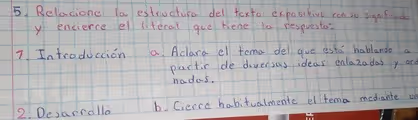 5. Relacione la estructura del texto expositivo con su significado
y encierre el literal que tiene la respuesta:
1. Introducción a. Aclara el tema del que está hablando a
partir de diversas ideas enlazadas y
nadas.
2. Desarrollo b. Cierre habitualmente el tema mediante